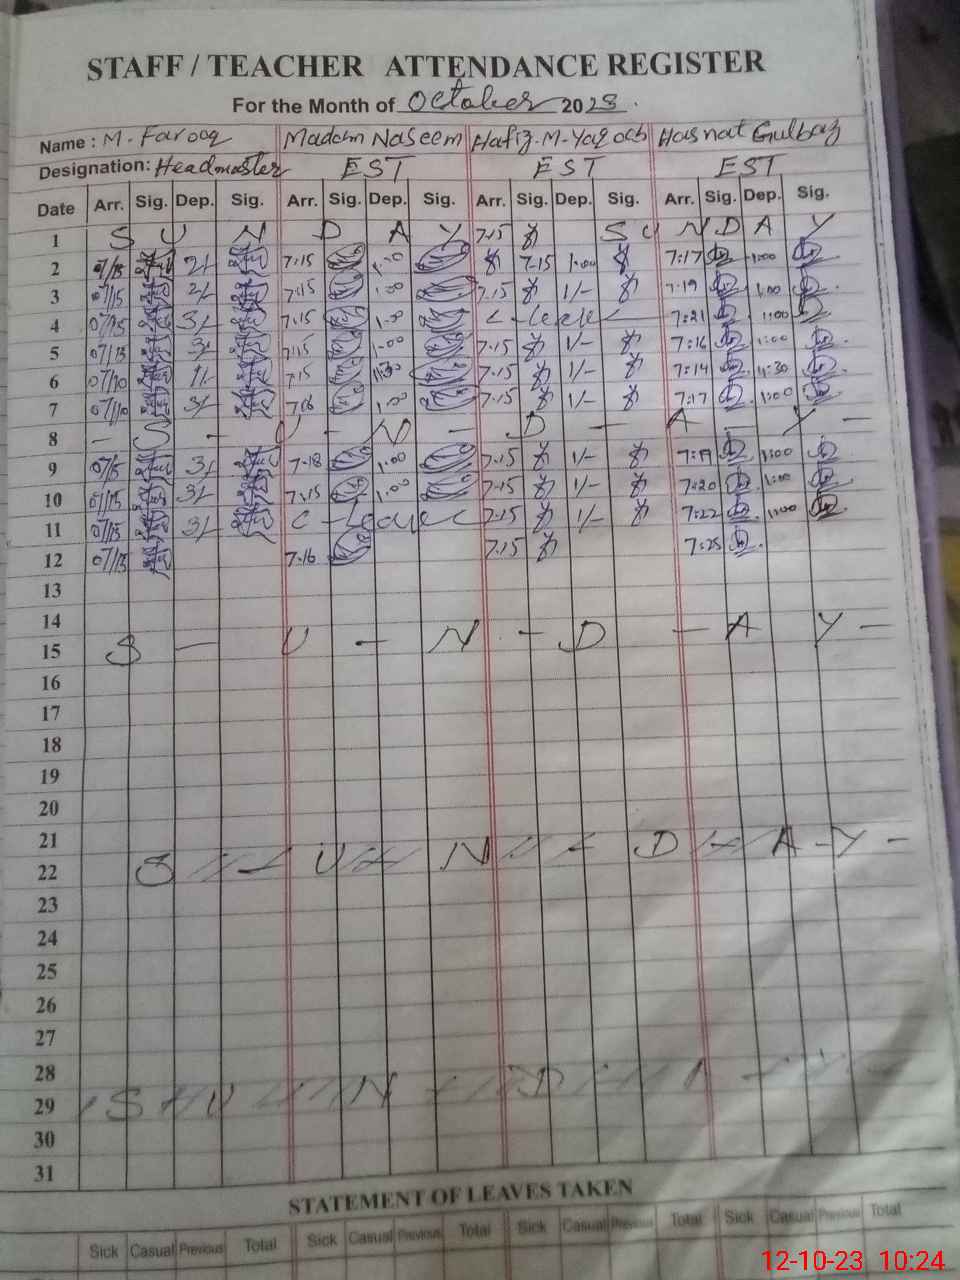 STAFF / TEACHER ATTENDANCE REGISTER
For the Month of October 2023.
Name : M. Farooq Madam Naseem Hafiz. M. Yaqoob Hasnat Gulbaz
Designation: Headmaster EST EST EST
Date Arr. Sig. Dep. Sig. Arr. Sig. Dep. Sig. Arr. Sig. Dep. Sig. Arr. Sig. Dep. Sig.
1 S U N D A Y 7.15 S U N D A Y
2 07/15 2/- 7:15 1:00 7.15 1:00 7:17 1:00
3 07/15 2/- 7:15 1:00 7.15 1/- 7:19 1:00
4 07/15 3/- 7:15 1:00 C - Leave 7:21 1:00
5 07/15 3/- 7:15 1:00 7.15 1/- 7:16 1:00
6 07/10 11/- 7:15 7.15 1/- 7:14 11:30
7 07/10 3/- 7:16 1:00 7.15 1/- 7:17 1:00
8 - S - U - N - D - A - Y -
9 07/15 3/- 7-18 1:00 7.15 1/- 7:19 1:00
10 07/15 3/- 7:15 1:00 7.15 1/- 7:20 1:00
11 07/15 3/- C - Leave 7.15 1/- 7:22 1:00
12 07/15 7.16 7.15 7:25
13
14
15 S - U - N - D - A Y -
16
17
18
19
20
21
22 S - U N - D - A - Y -
23
24
25
26
27
28
29 S U N D
30
31
STATEMENT OF LEAVES TAKEN
Sick Casual Previous Total Sick Casual Previous Total Sick Casual Previous Total Sick Casual Previous Total
12-10-23 10:24